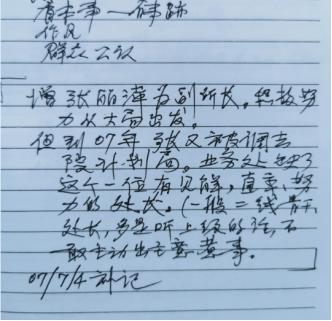 看本事一事跡
作风
群众公议
增张丽萍为副所长。积极努
力从大局出发。
但到07年张又被调去
院计划局。业务处缺了
这个一位有见解,直率、努
力的处长。(一般二线若干
处长,多是听上级的话,不
敢主动出主意惹事。
07/7/4 补记